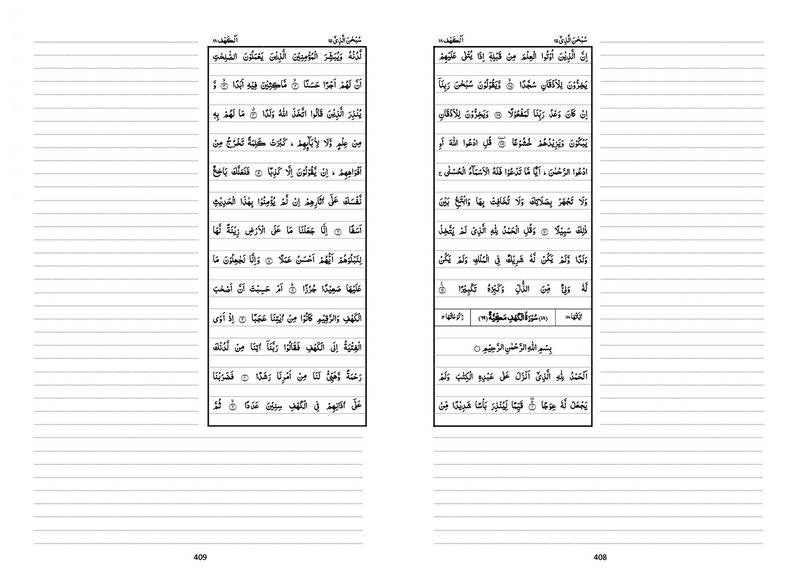 سُبْحٰنَ الَّذِیْۤ ١٥
اَلْكَهْف ١٨
اِنَّ الَّذِیْنَ اُوْتُوا الْعِلْمَ مِنْ قَبْلِهٖۤ اِذَا یُتْلٰى عَلَیْهِمْ
یَخِرُّوْنَ لِلْاَذْقَانِ سُجَّدًا ۝١٠٧ وَّیَقُوْلُوْنَ سُبْحٰنَ رَبِّنَاۤ
اِنْ كَانَ وَعْدُ رَبِّنَا لَمَفْعُوْلًا ۝١٠٨ وَیَخِرُّوْنَ لِلْاَذْقَانِ
یَبْكُوْنَ وَیَزِیْدُهُمْ خُشُوْعًا ۝١٠٩ قُلِ ادْعُوا اللّٰهَ اَوِ
ادْعُوا الرَّحْمٰنَ ؕ اَیًّا مَّا تَدْعُوْا فَلَهُ الْاَسْمَآءُ الْحُسْنٰى ۚ
وَلَا تَجْهَرْ بِصَلَاتِكَ وَلَا تُخَافِتْ بِهَا وَابْتَغِ بَیْنَ
ذٰلِكَ سَبِیْلًا ۝١١٠ وَقُلِ الْحَمْدُ لِلّٰهِ الَّذِیْ لَمْ یَتَّخِذْ
وَلَدًا وَّلَمْ یَكُنْ لَّهٗ شَرِیْكٌ فِی الْمُلْكِ وَلَمْ یَكُنْ
لَّهٗ وَلِیٌّ مِّنَ الذُّلِّ وَكَبِّرْهُ تَكْبِیْرًا ۝١١١
اٰیَاتُهَا ١١٠
(١٨) سُوْرَةُ الْكَهْفِ مَكِّیَّةٌ (٦٩)
رُكُوْعَاتُهَا ١٢
بِسْمِ اللّٰهِ الرَّحْمٰنِ الرَّحِیْمِ ۝
اَلْحَمْدُ لِلّٰهِ الَّذِیْۤ اَنْزَلَ عَلٰى عَبْدِهِ الْكِتٰبَ وَلَمْ
یَجْعَلْ لَّهٗ عِوَجًا ۝١ قَیِّمًا لِّیُنْذِرَ بَاْسًا شَدِیْدًا مِّنْ
408
سُبْحٰنَ الَّذِیْۤ ١٥
اَلْكَهْف ١٨
لَّدُنْهُ وَیُبَشِّرَ الْمُؤْمِنِیْنَ الَّذِیْنَ یَعْمَلُوْنَ الصّٰلِحٰتِ
اَنَّ لَهُمْ اَجْرًا حَسَنًا ۝٢ مَّاكِثِیْنَ فِیْهِ اَبَدًا ۝٣ وَّ
یُنْذِرَ الَّذِیْنَ قَالُوا اتَّخَذَ اللّٰهُ وَلَدًا ۝٤ مَا لَهُمْ بِهٖ
مِنْ عِلْمٍ وَّلَا لِاٰبَآئِهِمْ ؕ كَبُرَتْ كَلِمَةً تَخْرُجُ مِنْ
اَفْوَاهِهِمْ ؕ اِنْ یَّقُوْلُوْنَ اِلَّا كَذِبًا ۝٥ فَلَعَلَّكَ بَاخِعٌ
نَّفْسَكَ عَلٰۤى اٰثَارِهِمْ اِنْ لَّمْ یُؤْمِنُوْا بِهٰذَا الْحَدِیْثِ
اَسَفًا ۝٦ اِنَّا جَعَلْنَا مَا عَلَى الْاَرْضِ زِیْنَةً لَّهَا
لِنَبْلُوَهُمْ اَیُّهُمْ اَحْسَنُ عَمَلًا ۝٧ وَاِنَّا لَجٰعِلُوْنَ مَا
عَلَیْهَا صَعِیْدًا جُرُزًا ۝٨ اَمْ حَسِبْتَ اَنَّ اَصْحٰبَ
الْكَهْفِ وَالرَّقِیْمِ كَانُوْا مِنْ اٰیٰتِنَا عَجَبًا ۝٩ اِذْ اَوَى
الْفِتْیَةُ اِلَى الْكَهْفِ فَقَالُوْا رَبَّنَاۤ اٰتِنَا مِنْ لَّدُنْكَ
رَحْمَةً وَّهَیِّئْ لَنَا مِنْ اَمْرِنَا رَشَدًا ۝١٠ فَضَرَبْنَا
عَلٰۤى اٰذَانِهِمْ فِی الْكَهْفِ سِنِیْنَ عَدَدًا ۝١١ ثُمَّ
409